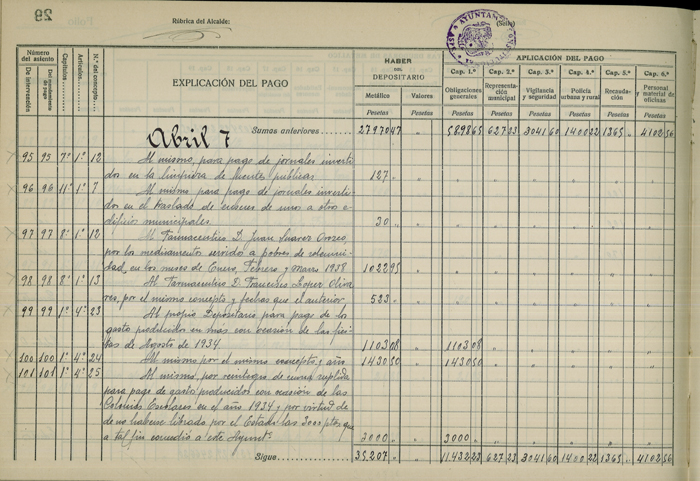 29
Rúbrica del Alcalde:
AYUNTAMIENTO
Número del asiento
De intervención
Del mandamiento de pago
Capítulos
Artículos
N.º del concepto
EXPLICACIÓN DEL PAGO
HABER DEL DEPOSITARIO
Metálico Valores
Pesetas Pesetas
APLICACIÓN DEL PAGO
Cap. 1.º Cap. 2.º Cap. 3.º Cap. 4.º Cap. 5.º Cap. 6.º
Obligaciones generales
Representación municipal
Vigilancia y seguridad
Policía urbana y rural
Recaudación
Personal y material de oficinas
Pesetas Pesetas Pesetas Pesetas Pesetas Pesetas
Abril 7 Sumas anteriores 27970 47 " 5898 65 627 23 3041 60 1400 22 1365 " 4102 56
95 95 7º 1º 12 Al mismo, para pago de jornales inverti-
dos en la limpieza de fuentes publicas 127 "
96 96 11º 1º 7 Al mismo para pago de jornales inverti-
dos en el traslado de enseres de unos a otros e-
dificios municipales 30 "
97 97 8º 1º 12 Al Farmaceutico D. Juan Suarez Orozco
por los medicamentos servidos a pobres de solemni-
dad, en los meses de Enero, Febrero y Marzo 1938 1022 95
98 98 8º 1º 13 Al Farmaceutico D. Francisco Lopez Oliva
res, por el mismo concepto y fechas que el anterior 533 "
99 99 1º 4º 23 Al propio Depositario para pago de los
gastos producidos en más con ocasión de las fies-
tas de Agosto de 1934 1103 08 1103 08
100 100 1º 4º 24 Al mismo por el mismo concepto y año 1430 50 1430 50
101 101 1º 4º 25 Al mismo, por reintegro de suplida
para pago de gastos producidos con ocasión de las
Colonias Escolares en el año 1934 y por virtud de
no haberse librado por el Estado las 3000 ptas que
a tal fin concedió a este Ayunt. 3000 " 3000 "
Sigue 35.207 " " 11.432 23 627 23 3041 60 1400 22 1365 " 4102 56